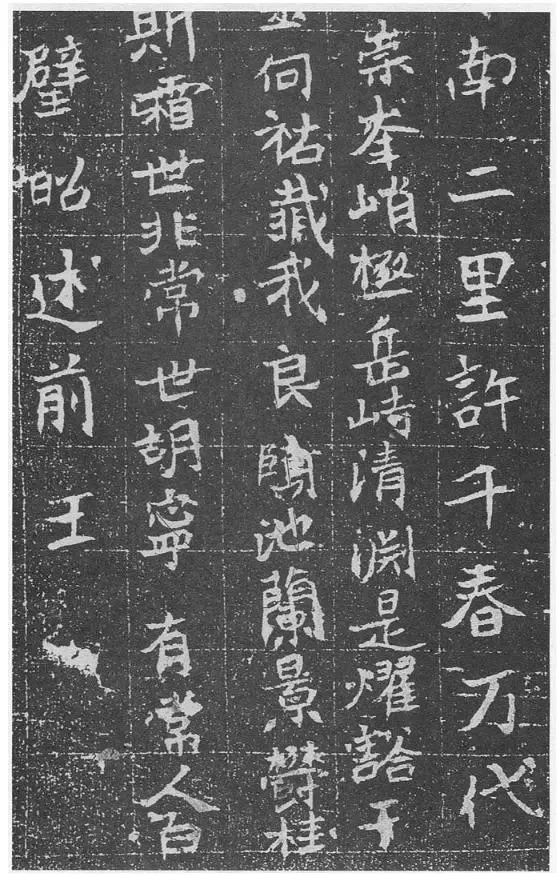 南二里許千春万代
崇峯峭極岳峙清渕是燿豁于
何祐藏我良池蘭景欝桂
斯霜世非常世胡寧有常人百
璧昭述前王